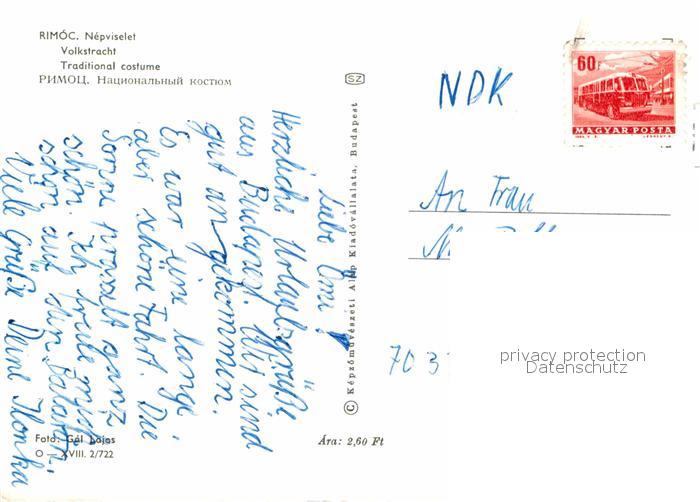 RIMÓC. Népviselet
Volkstracht
Traditional costume
РИМОЦ. Национальный костюм
SZ
NDK
60f
MAGYAR POSTA
An Frau
70 3
privacy protection
Datenschutz
Liebe Oma!
Herzliche Urlaubsgrüße
aus Budapest. Wir sind
gut angekommen.
Es war eine lange
aber schöne Fahrt. Die
Sonne prasselt ganz
schön. Ich freue mich
schon auf den Balaton.
Viele Grüße Deine Ilonka
© Képzőművészeti Alap Kiadóvállalata, Budapest
Foto: Gál Lajos
O — XVIII. 2/722
Ára: 2,60 Ft